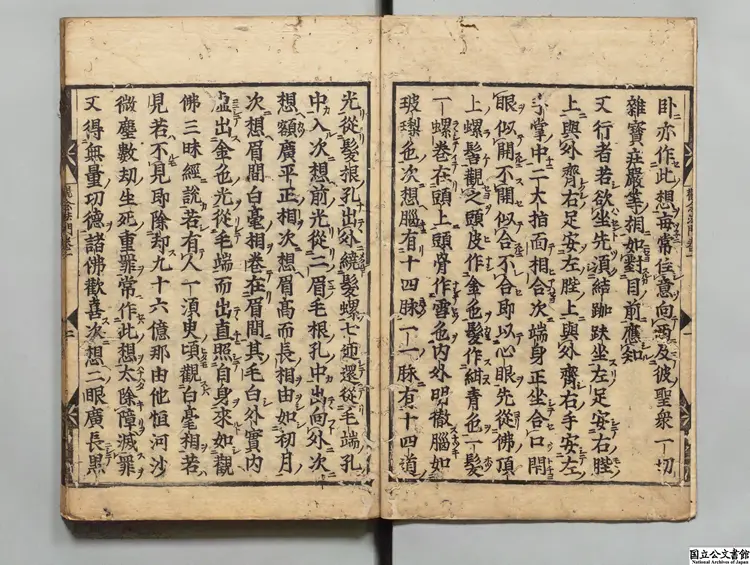 臥亦作此想每常住意向西及彼聖衆一切
雜寶莊嚴等相如對目前應知
又行者若欲坐先須結跏趺坐左足安右䏶
上與外齊右足安左䏶上與外齊右手安左
手掌中二大指面相合次端身正坐合口閇
眼似開不開似合不合即以心眼先從佛頂
上螺髻觀之頭皮作金色髮作紺青色一髮
一螺卷在頭上頭骨作雪色内外明徹腦如
玻瓈色次想腦有十四脉一一脉有十四道
光從髮根孔出外繞髮螺七迊還從毛端孔
中入次想前光從二眉毛根孔中出向外次
想額廣平正相次想眉高而長相由如初月
次想眉間白毫相卷在眉間其毛白外實内
虛出金色光從毛端而出直照自身來如觀
佛三昧經說若有人一須臾頃觀白毫相若
見若不見即除却九十六億那由他恒河沙
微塵數劫生死重罪常作此想太除障滅罪
又得無量功德諸佛歡喜次想二眼廣長黑
国立公文書館
National Archives of Japan